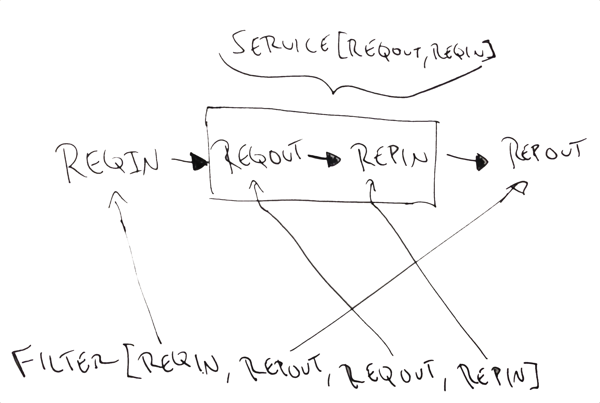 SERVICE[REQOUT, REQIN]
REQIN REQOUT REPIN REPOUT
FILTER[REQIN, REPOUT, REQOUT, REPIN]